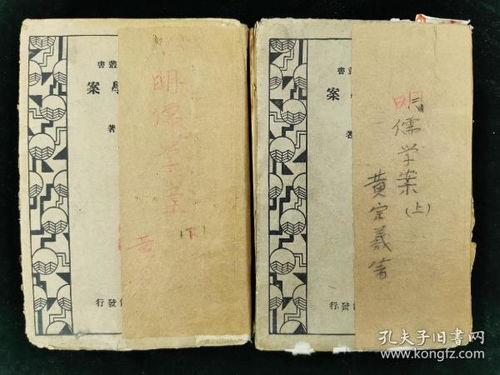 叢書
學案
著
發行
明儒学案
(下)
黄
書
案
著
發行
明儒学案
(上)
黄宗羲著
孔夫子旧书网
www.kongfz.com